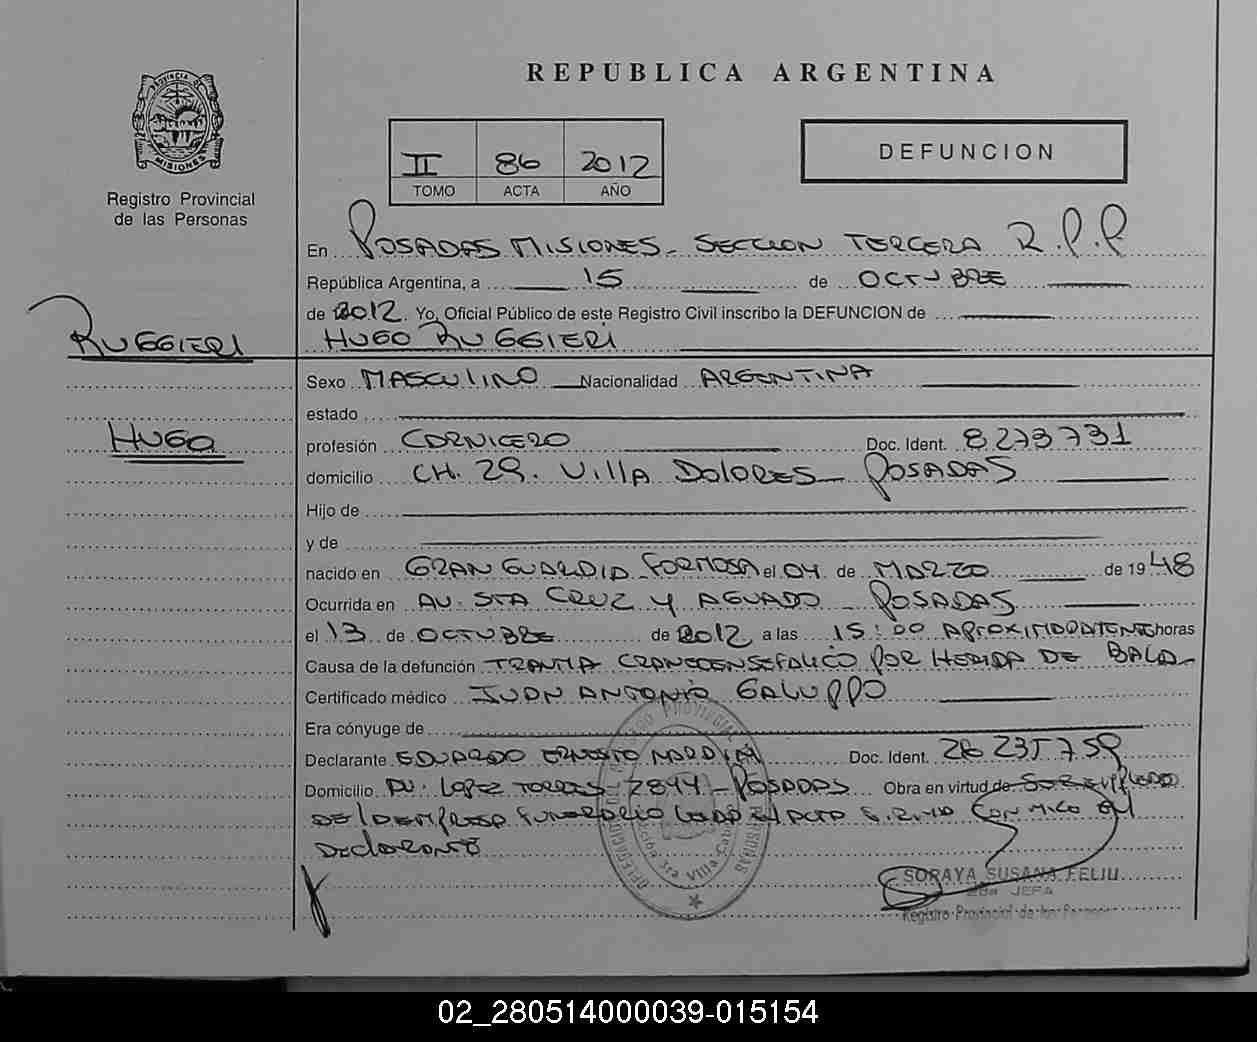 REPUBLICA ARGENTINA
PROVINCIA DE MISIONES
Registro Provincial
de las Personas
II 86 2012
TOMO ACTA AÑO
DEFUNCION
En POSADAS MISIONES - SECCION TERCERA R.P.P
República Argentina, a 15 de OCTUBRE
de 2012. Yo, Oficial Público de este Registro Civil inscribo la DEFUNCION de
HUGO RUGGIERI
RUGGIERI
HUGO
Sexo MASCULINO Nacionalidad ARGENTINA
estado
profesión CARNICERO Doc. Ident. 8273731
domicilio CH. 29. VILLA DOLORES - POSADAS
Hijo de
y de
nacido en GRAN GUARDIA - FORMOSA el 04 de MARZO de 1948
Ocurrida en AV. STA CRUZ Y AGUADO - POSADAS
el 13 de OCTUBRE de 2012 a las 15:00 APROXIMADAMENTE horas
Causa de la defunción TRAUMA CRANEOENSEFALICO POR HERIDA DE BALA -
Certificado médico JUAN ANTONIO GALUPPO
Era cónyuge de
Declarante EDUARDO ERNESTO Doc. Ident. 26 235 759
Domicilio AV. LOPEZ TORRES 2844 - POSADAS Obra en virtud de SER EMPLEADO
DE LA EMPRESA FUNERARIA LEIDA EL ACTA FIRMA CONMIGO EL
DECLARANTE
SORAYA SUSANA FELIU
JEFA
Registro Provincial de las Personas
02_280514000039-015154